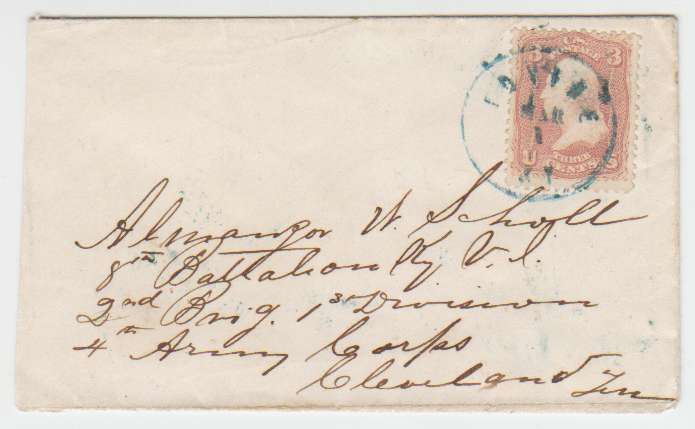 U.S. POSTAGE
3 3
MAR
1
U S
THREE
CENTS
Almanzor W. Scholl
8th Battalion Ky V. I.
2nd Brig. 1st Division
4th Army Corps
Cleveland Ten